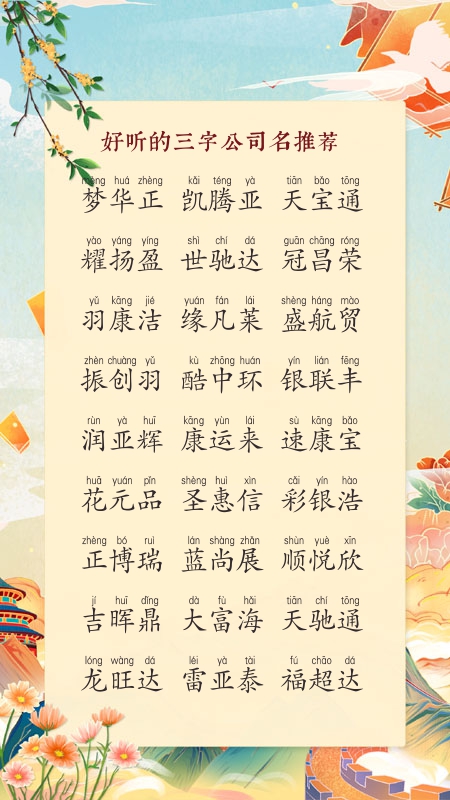 好听的三字公司名推荐
mèng huá zhèng kǎi téng yà tiān bǎo tōng
梦华正 凯腾亚 天宝通
yào yáng yíng shì chí dá guān chāng róng
耀扬盈 世驰达 冠昌荣
yǔ kāng jié yuán fán lái shèng háng mào
羽康洁 缘凡莱 盛航贸
zhèn chuàng yǔ kù zhōng huán yín lián fēng
振创羽 酷中环 银联丰
rùn yà huī kāng yùn lái sù kāng bǎo
润亚辉 康运来 速康宝
huā yuán pǐn shèng huì xìn cǎi yín hào
花元品 圣惠信 彩银浩
zhèng bó ruì lán shàng zhǎn shùn yuè xīn
正博瑞 蓝尚展 顺悦欣
jí huī dǐng dà fù hǎi tiān chí tōng
吉晖鼎 大富海 天驰通
lóng wàng dá léi yà tài fú chāo dá
龙旺达 雷亚泰 福超达